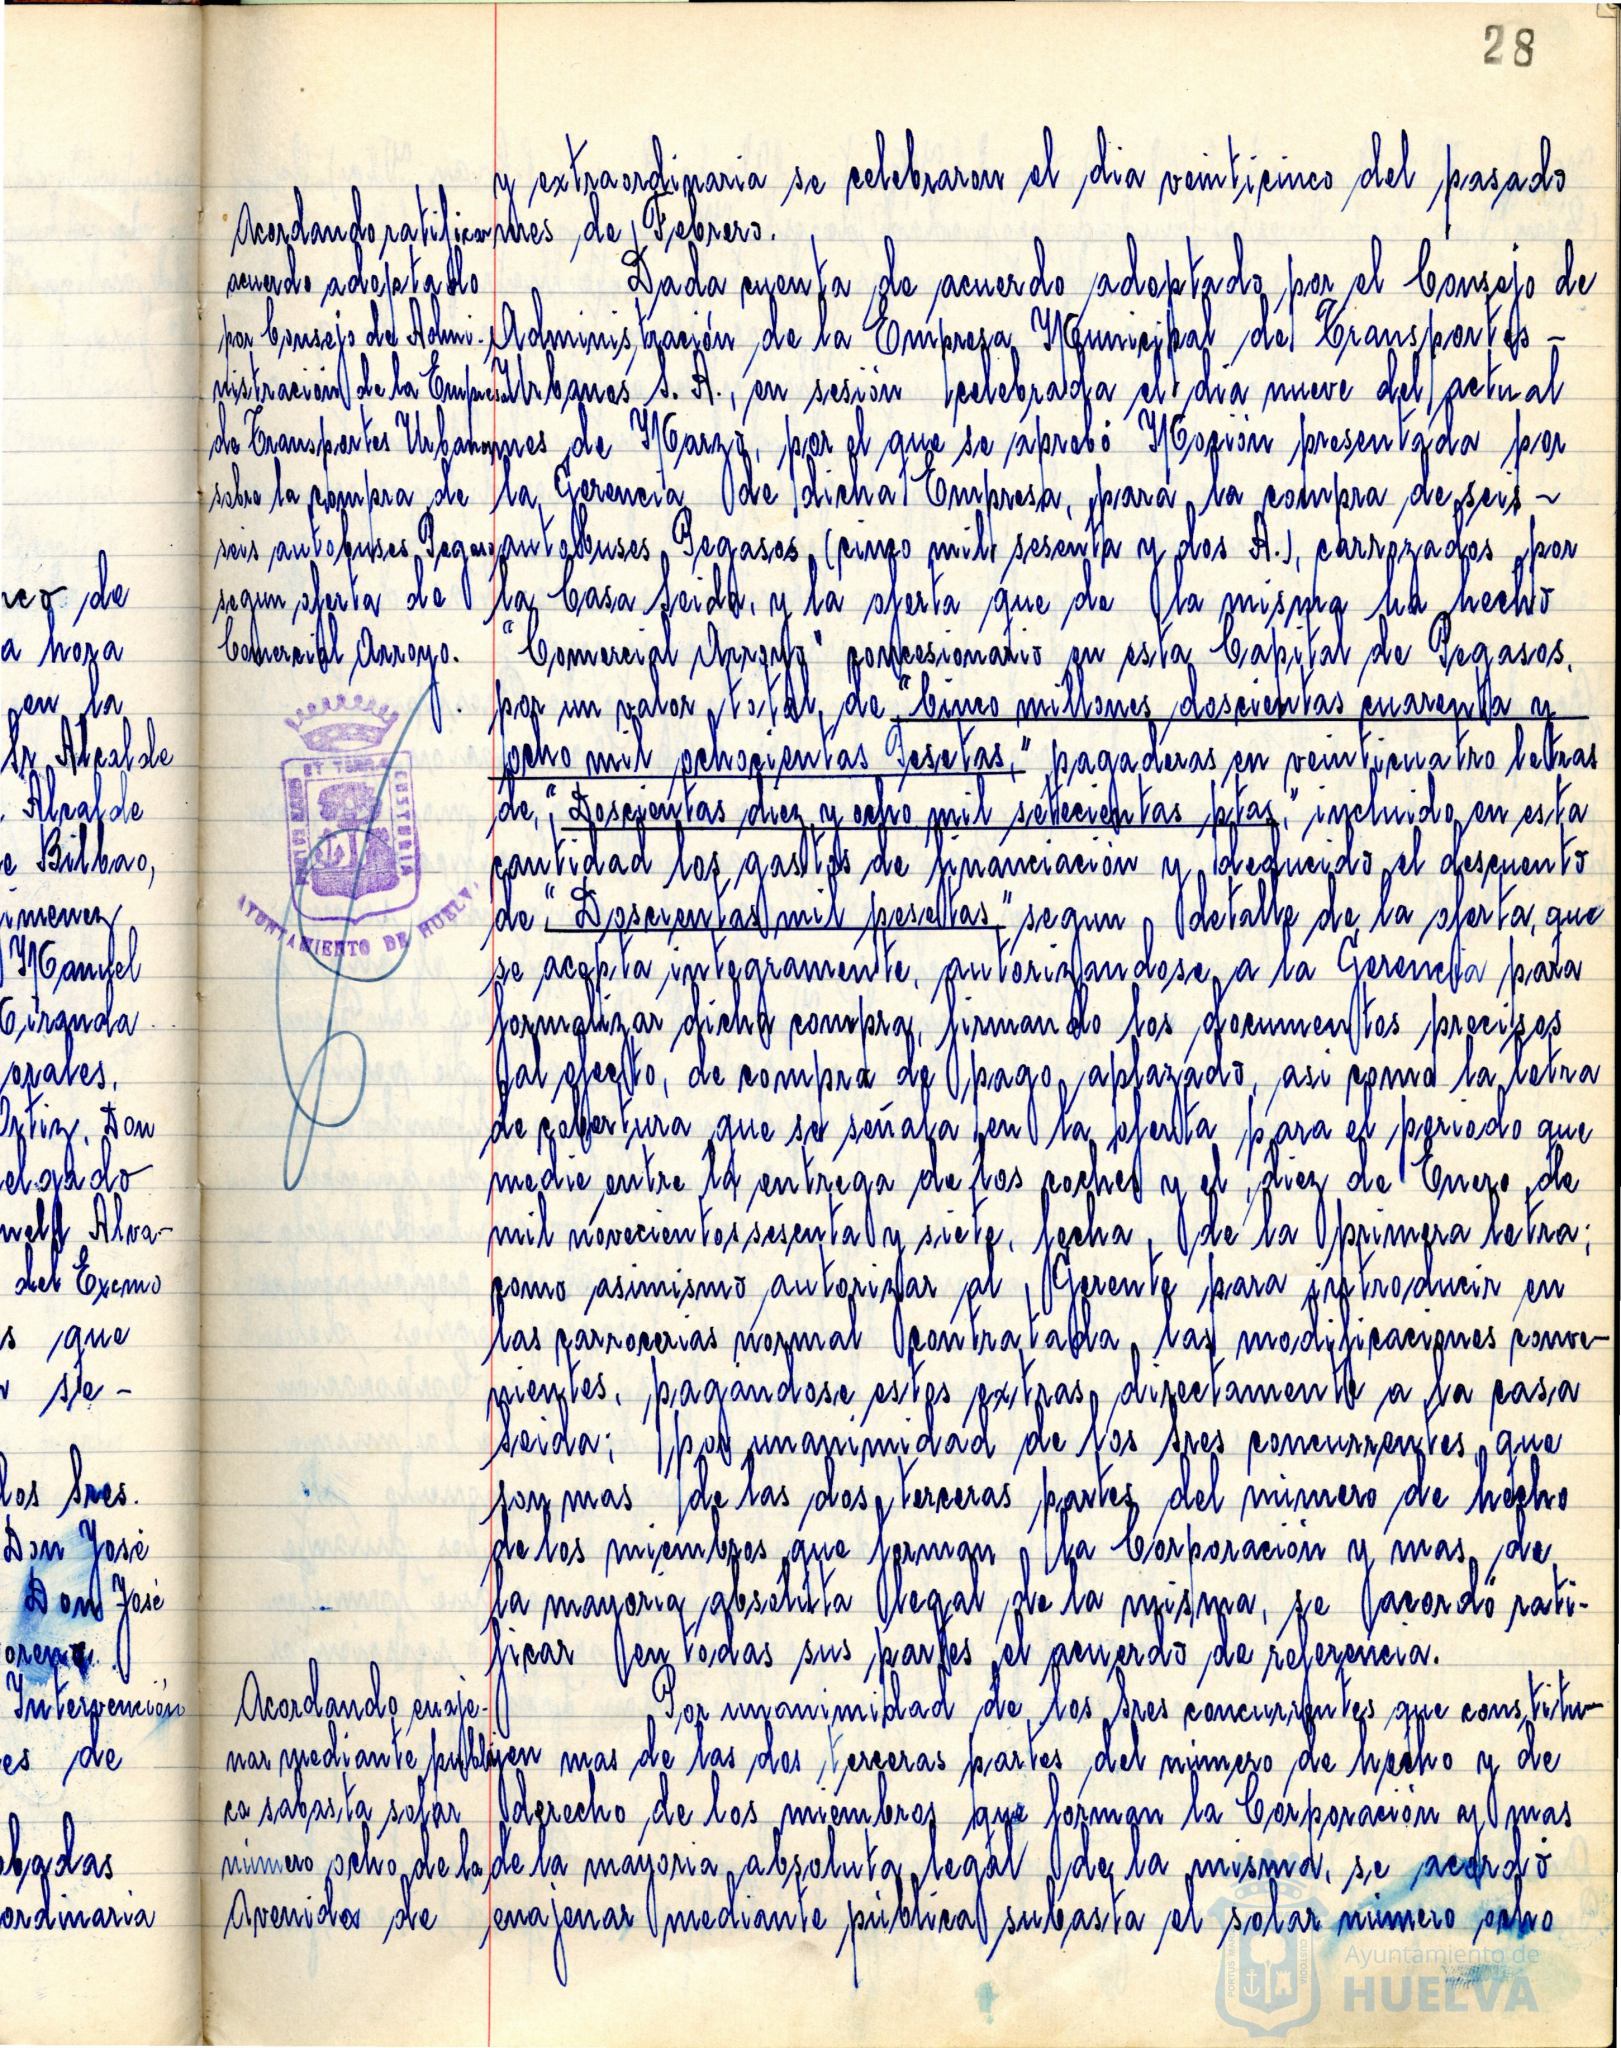 28
y extraordinaria se celebraron el dia veinticinco del pasado
mes de Febrero.
Dada cuenta de acuerdo adoptado por el Consejo de
Administración de la Empresa Municipal de Transportes -
Urbanos S. A., en sesión celebrada el dia nueve del actual
mes de Marzo, por el que se aprobó Moción presentada por
la Gerencia de dicha Empresa, para la compra de seis -
autobuses Pegasos (cinco mil sesenta y dos A.), carrozados por
la Casa Seida, y la oferta que de la misma ha hecho
"Comercial Arroyo" concesionario en esta Capital de Pegasos,
por un valor total de "Cinco millones doscientas cuarenta y
ocho mil ochocientas Pesetas," pagaderas en veinticuatro letras
de, "Doscientas diez y ocho mil setecientas ptas," incluido en esta
cantidad los gastos de financiación y deducido el descuento
de "Doscientas mil pesetas" segun detalle de la oferta, que
se acepta integramente, autorizandose a la Gerencia para
formalizar dicha compra, firmando los documentos precisos
al efecto, de compra de pago aplazado, asi como la letra
de cobertura que se señala en la oferta para el periodo que
medie entre la entrega de los coches y el diez de Enero de
mil novecientos sesenta y siete, fecha de la primera letra;
como asimismo autorizar al Gerente para introducir en
las carrocerias normal contratada las modificaciones conve-
nientes, pagandose estos extras directamente a la casa
Seida; por unanimidad de los Sres concurrentes que
son mas de las dos terceras partes del número de hecho
de los miembros que forman la Corporación y mas de
la mayoria absoluta legal de la misma, se acordó rati-
ficar en todas sus partes el acuerdo de referencia.
Por unanimidad de los Sres concurrentes que constitu-
yen mas de las dos terceras partes del número de hecho y de
derecho de los miembros que forman la Corporación y mas
de la mayoria absoluta legal de la misma, se acordó
enajenar mediante pública subasta el solar número ocho
Acordando ratificar
acuerdo adoptado
por Consejo de Admi-
nistración de la Empresa
de Transportes Urbanos
sobre la compra de
seis autobuses Pegaso
segun oferta de
Comercial Arroyo.
PORTUS MARIS ET TERRAE CUSTODIA
AYUNTAMIENTO DE HUELVA
Acordando enaje-
nar mediante públi-
ca sabasta solar
número ocho de la
Avenida de
de
a hora
en la
Sr Alcalde
Alcalde
e Bilbao,
imenez
Manuel
Ciranda
orales,
Ortiz, Don
elgado
Alva-
del Excmo
s que
se-
los Sres.
Don José
Don José
oreno
Intervención
es de
obadas
ordinaria
Ayuntamiento de
HUELVA